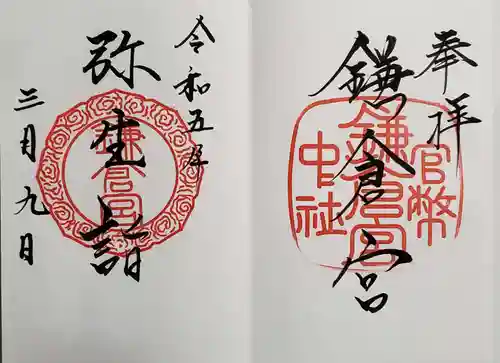 奉拝
鎌倉宮
官幣
鎌倉宮
中社
令和五年
弥生詣
鎌倉宮
三月九日